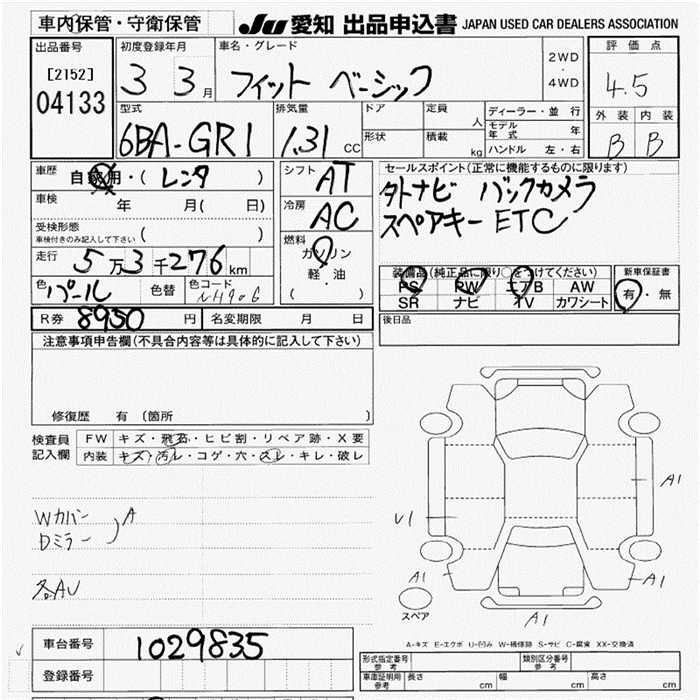 車内保管・守衛保管
JU 愛知 出品申込書 JAPAN USED CAR DEALERS ASSOCIATION
出品番号
[2152]
04133
初度登録年月
3 3月
車名・グレード
フィット ベーシック
2WD
・
4WD
評価点
4.5
外装 内装
B B
型式
6BA-GR1
排気量
1.31 CC
ドア
定員 人
形状
積載 kg
ディーラー・並行
モデル年式 年
ハンドル 左・右
車歴
自家用・( レンタ )
車検 年 月( 日)
受検形態
車検付きのみ記入して下さい ( )
走行 5万3千276km
色 パール 色替 色コード
シフト AT
冷房 AC
燃料
ガソリン
軽・油
( )
セールスポイント(正常に機能するものに限ります)
タトナビ バックカメラ
スペアキー ETC
装備品(純正品に限り○をつけてください)
PS PW エアB AW
SR ナビ TV カワシート
新車保証書
有・無
R券 8950円 名変期限 月 日
後日品
注意事項申告欄(不具合内容等は具体的に記入して下さい)
修復歴 有 〔箇所 〕
検査員記入欄
FW キズ・飛石・ヒビ割・リペア跡・X要
内装 キズ・汚レ・コゲ・穴・スレ・キレ・破レ
Wカバー
Dミラー
A
各AU
A1
U1
A1
A1
A1
スペア
A-キズ E-エクボ U-凹み W-補修跡 S-サビ C-腐食 XX-交換済
車台番号 1029835
登録番号
型式指定番号 参考
類別区分番号 参考
車庫証明用 参考 長さ cm 幅 cm 高さ cm